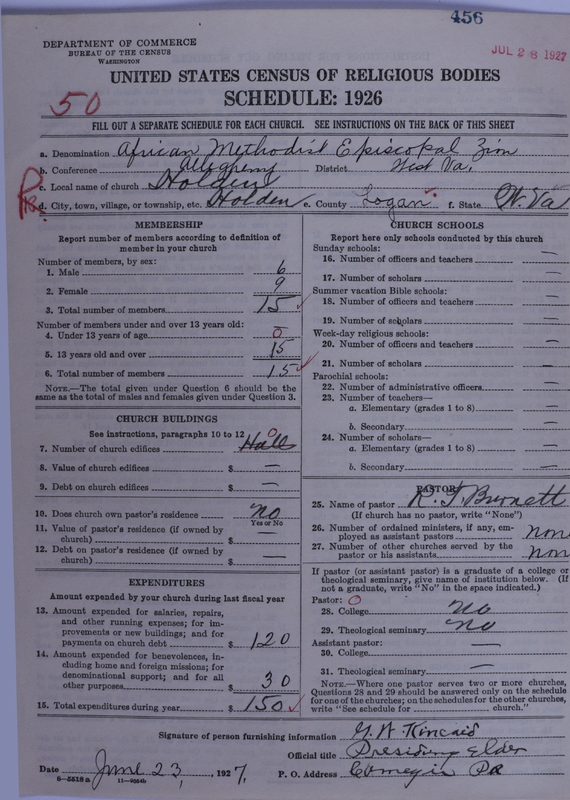 456
JUL 28 1927
DEPARTMENT OF COMMERCE
BUREAU OF THE CENSUS
WASHINGTON
UNITED STATES CENSUS OF RELIGIOUS BODIES
SCHEDULE: 1926
50
FILL OUT A SEPARATE SCHEDULE FOR EACH CHURCH. SEE INSTRUCTIONS ON THE BACK OF THIS SHEET
a. Denomination African Methodist Episcopal Zion
b. Conference Allegheny District West Va.
c. Local name of church Holden
d. City, town, village, or township, etc. Holden e. County Logan f. State W. Va
MEMBERSHIP
Report number of members according to definition of member in your church
Number of members, by sex:
1. Male 6
2. Female 9
3. Total number of members 15
Number of members under and over 13 years old:
4. Under 13 years of age 0
5. 13 years old and over 15
6. Total number of members 15
NOTE.—The total given under Question 6 should be
same as the total of males and females given under Question 3.
CHURCH BUILDINGS
See instructions, paragraphs 10 to 12
7. Number of church edifices Hall 0
8. Value of church edifices $ —
9. Debt on church edifices $ —
10. Does church own pastor's residence? no
Yes or No
11. Value of pastor's residence (if owned by
church) $ —
12. Debt on pastor's residence (if owned by
church) $ —
EXPENDITURES
Amount expended by your church during last fiscal year
13. Amount expended for salaries, repairs,
and other running expenses; for im-
provements or new buildings; and for
payments on church debt $ 120
14. Amount expended for benevolences, in-
cluding home and foreign missions; for
denominational support; and for all
other purposes $ 30
15. Total expenditures during year $ 150
CHURCH SCHOOLS
Report here only schools conducted by this church
Sunday schools:
16. Number of officers and teachers —
17. Number of scholars —
Summer vacation Bible schools:
18. Number of officers and teachers —
19. Number of scholars —
Week-day religious schools:
20. Number of officers and teachers —
21. Number of scholars —
Parochial schools:
22. Number of administrative officers —
23. Number of teachers—
a. Elementary (grades 1 to 8) —
b. Secondary —
24. Number of scholars—
a. Elementary (grades 1 to 8) —
b. Secondary —
PASTOR
25. Name of pastor Burnett
(If church has no pastor, write "None")
26. Number of ordained ministers, if any, em-
ployed as assistant pastors non
27. Number of other churches served by the
pastor or his assistants non
If pastor (or assistant pastor) is a graduate of a college or
theological seminary, give name of institution below. (If
not a graduate, write "No" in the space indicated.)
Pastor: 0
28. College no
29. Theological seminary no
Assistant pastor:
30. College —
31. Theological seminary —
NOTE.—Where one pastor serves two or more churches,
Questions 28 and 29 should be answered only on the schedule
for one of the churches; on the schedules for the other churches,
write "See schedule for church."
Signature of person furnishing information G. W. Kincaid
Official title Presiding Elder
Date June 23, 1927. P. O. Address Pa
8-5518a 11-9024b